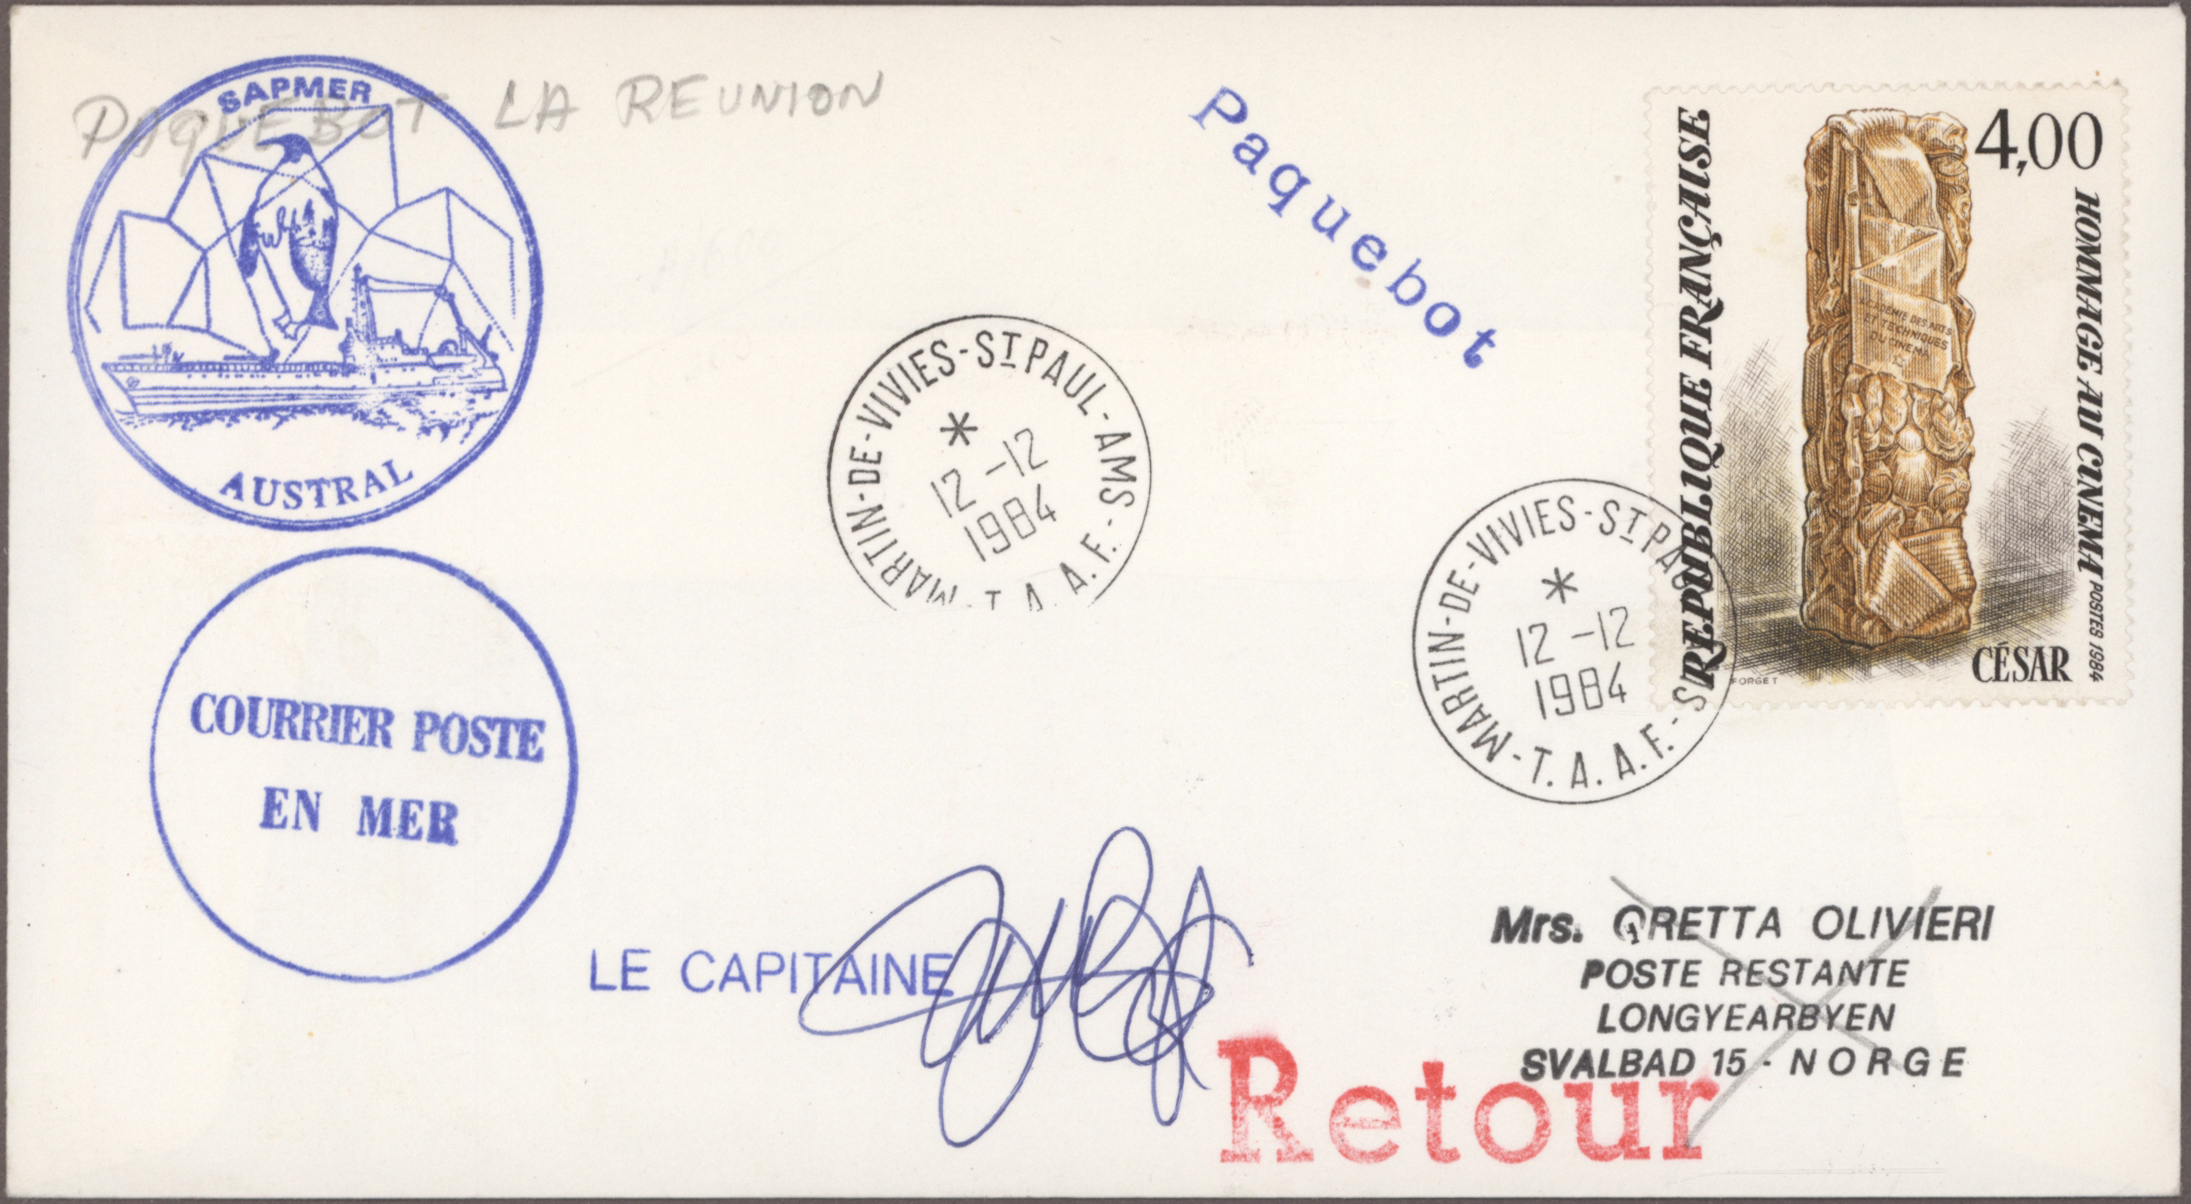 PAQUEBOT LA REUNION
SAPMER
AUSTRAL
COURRIER POSTE
EN MER
Paquebot
MARTIN-DE-VIVIES-ST PAUL-AMS-T.A.A.F.-
*
12-12
1984
MARTIN-DE-VIVIES-ST PAUL-T.A.A.F.-
*
12-12
1984
REPUBLIQUE FRANÇAISE
4,00
HOMMAGE AU CINEMA
POSTES 1984
ACADEMIE DES ARTS
ET TECHNIQUES
DU CINEMA
CÉSAR
FORGET
LE CAPITAINE
Mrs. GRETTA OLIVIERI
POSTE RESTANTE
LONGYEARBYEN
SVALBAD 15 - NORGE
Retour